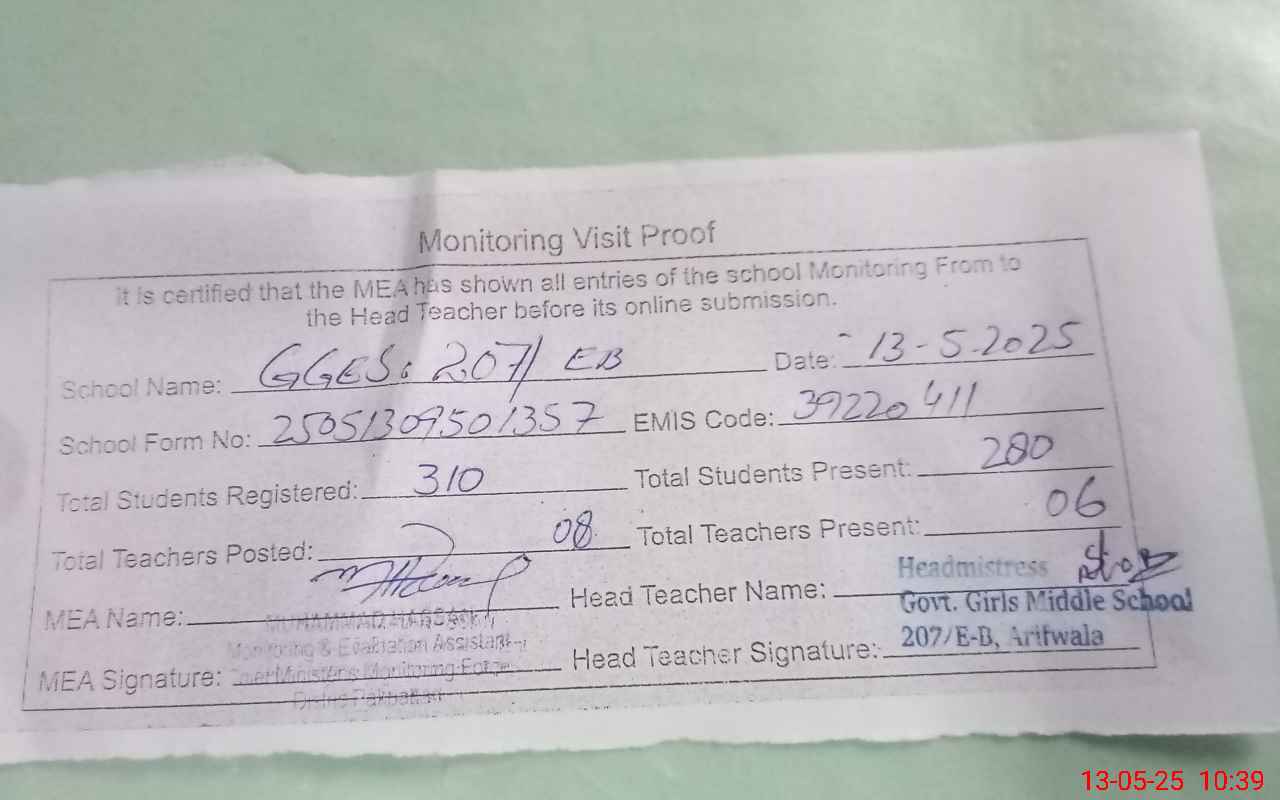 Monitoring Visit Proof
it is certified that the MEA has shown all entries of the school Monitoring From to
the Head Teacher before its online submission.
School Name: GGES. 207/ EB Date: 13-5-2025
School Form No: 25051309501357 EMIS Code: 39220411
Total Students Registered: 310 Total Students Present: 280
Total Teachers Posted: 08 Total Teachers Present: 06
MEA Name: Head Teacher Name: Headmistress
MUHAMMAD Govt. Girls Middle School
Monitoring & Evaluation Assistant 207/E-B, Arifwala
MEA Signature: Monitoring Force Head Teacher Signature:
13-05-25 10:39